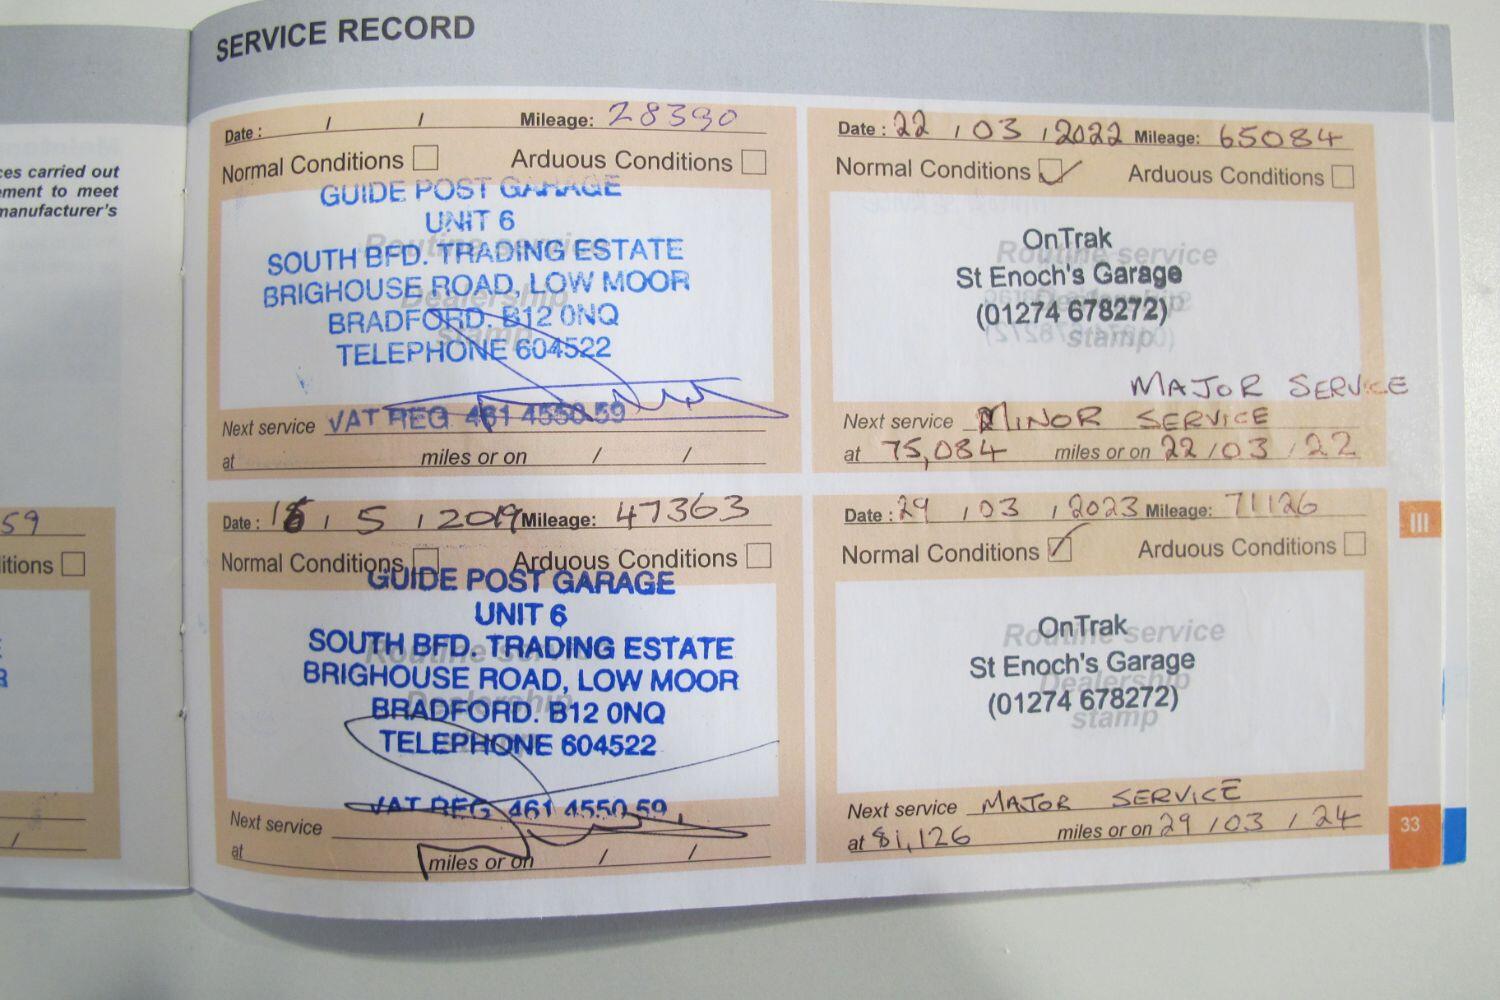 SERVICE RECORD
ces carried out
ement to meet
manufacturer's
59
itions
/
Date : / / Mileage: 28390
Normal Conditions Arduous Conditions
GUIDE POST GARAGE
UNIT 6
SOUTH BFD. TRADING ESTATE
BRIGHOUSE ROAD, LOW MOOR
BRADFORD. B12 0NQ
TELEPHONE 604522
Routine service
Dealership
stamp
VAT REG 461 4550 59
Next service
at miles or on / /
Date : 16 / 5 / 2019 Mileage: 47363
Normal Conditions Arduous Conditions
GUIDE POST GARAGE
UNIT 6
SOUTH BFD. TRADING ESTATE
BRIGHOUSE ROAD, LOW MOOR
BRADFORD. B12 0NQ
TELEPHONE 604522
Routine service
Dealership
VAT REG 461 4550 59
Next service
at miles or on / /
Date : 22 / 03 / 2022 Mileage: 65084
Normal Conditions Arduous Conditions
OnTrak
St Enoch's Garage
(01274 678272)
Routine service
Dealership
stamp
MAJOR SERVICE
Next service MINOR SERVICE
at 75,084 miles or on 22 / 03 / 22
Date : 29 / 03 / 2023 Mileage: 71126
Normal Conditions Arduous Conditions
OnTrak
St Enoch's Garage
(01274 678272)
Routine service
Dealership
stamp
Next service MAJOR SERVICE
at 81,126 miles or on 29 / 03 / 24
III
33